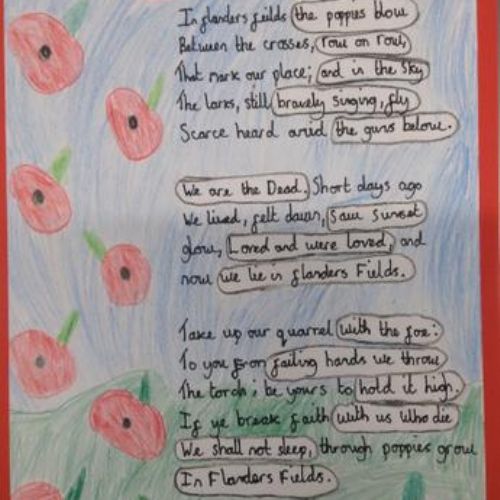 In flanders feilds the poppies blow
Between the crosses, row on row,
That mark our place; and in the sky
The larks, still bravely singing, fly
Scarce heard amid the guns below.
We are the Dead. Short days ago
We lived, felt dawn, saw sunset
glow, Loved and were loved, and
now we lie in flanders Fields.
Take up our quarrel with the foe:
To you from failing hands we throw
The torch; be yours to hold it high.
If ye break faith with us who die
We shall not sleep, through poppies grow
In Flanders Fields.